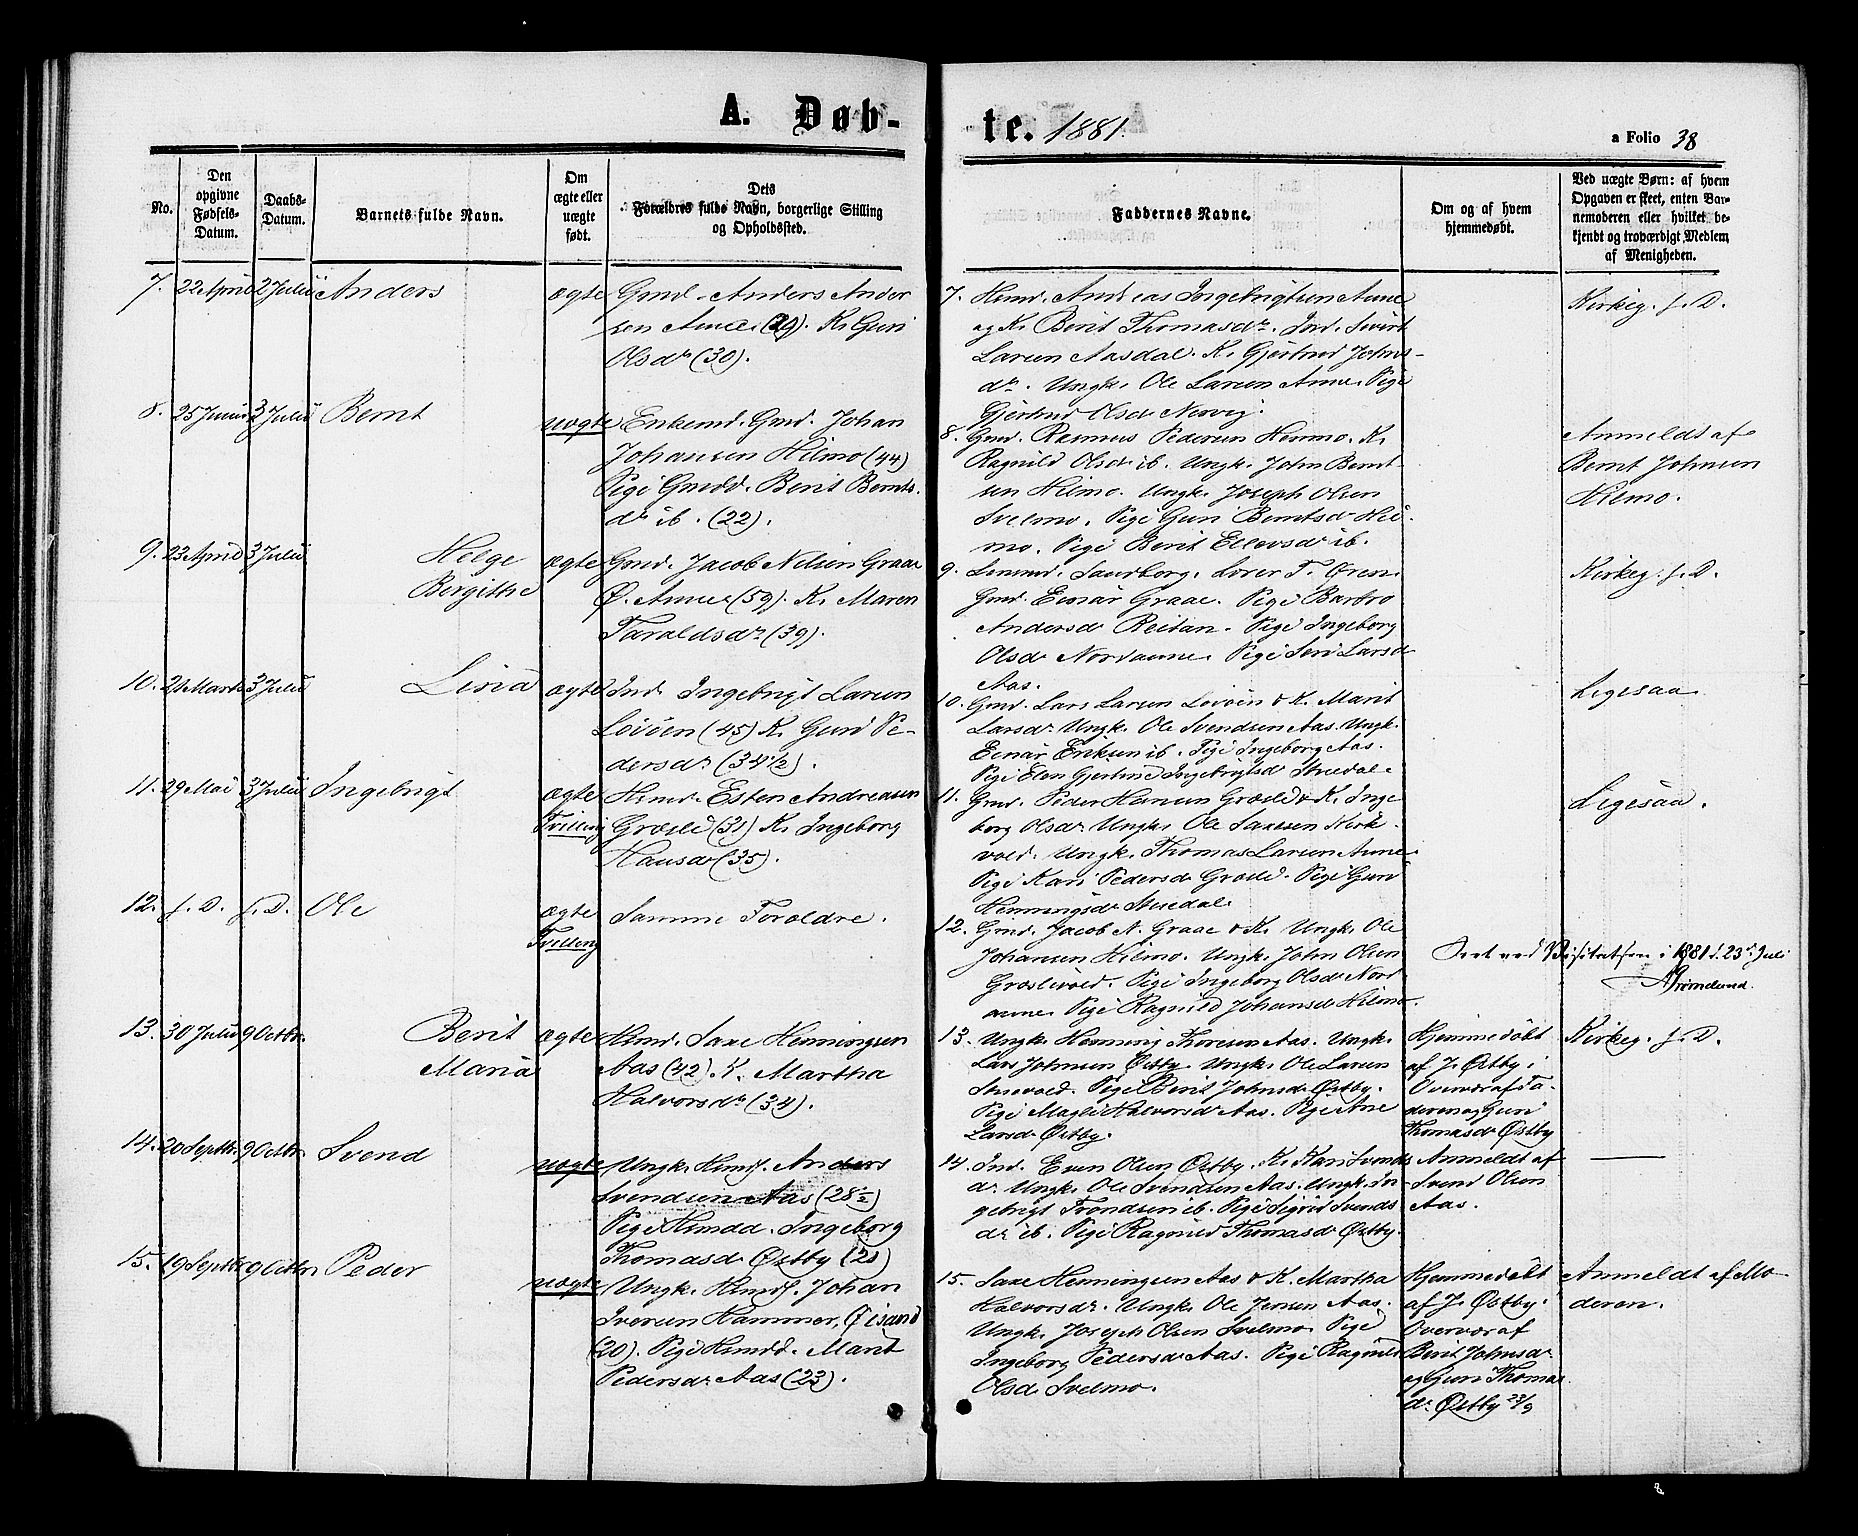 A. Døb-
te. 1881.
a Folio 38
No.
Den
opgivne
Fødsels-
Datum.
Daabs-
Datum.
Barnets fulde Navn.
Om
ægte eller
uægte
født.
Dets
Forældres fulde Navn, borgerlige Stilling
og Opholdssted.
Faddernes Navne.
Om og af hvem
hjemmedøbt.
Ved uægte Børn: af hvem
Opgaven er skeet, enten Bar-
nemoderen eller hvilket be-
kjendt og troværdigt Medlem
af Menigheden.
7. 22 April 2 Julii Anders ægte
Gmd. Anders Ander
sen Aune (29). K. Guri
Olsdr (30).
7. Hmd. Andreas Ingebrigtsen Aune
og K. Berit Thomasdr. Ind. Sivert
Larsen Aasdal. K. Gjertrud Johns-
dr. Ungk. Ole Larsen Aune. Pige
Gjertrud Olsdr Nervig.
Kirkeg. f. D.
8. 25 Junii 3 Julii Bernt uægte
Enkemd. Gmd. Johan
Johansen Hilmo (44)
Pige Gmdd. Berit Bernts.
dr ib. (22).
8. Gmd. Rasmus Pedersen Hemmo. K.
Ragnild Olsdr ib. Ungk. John Bernt-
sen Hilmo. Ungk. Joseph Olsen
Svelmo. Pige Guri Berntsdr Hil-
mo. Pige Berit Ellevsdr ib.
Anmeldt af
Bernt Johnsen
Hilmo.
9. 23 April 3 Julii Helge
Bergitthe
ægte
Gmd. Jacob Nilsen Graae
Ø. Aune (59). K. Maren
Taraldsdr (39).
9. Lensmd. Sandborg. Lærer T. Øren.
Gmd. Einar Graae. Pige Barbro
Andersdr Reitan. Pige Ingeborg
Olsdr Nordaune. Pige Siri Larsdr
Aas.
Kirkeg. f. D.
10. 21 Marts 3 Julii Livia ægte
Ind. Ingebrigt Larsen
Loiøen (45) K. Guru Pe-
dersdr. (34 1/2).
10. Gmd. Lars Larsen Loiøen & K. Marit
Larsdr. Ungk. Ole Svendsen Aas. Ungk.
Einar Eriksen ib. Pige Ingeborg Aas.
Pige Elen Gjertine Ingebrigtsd Stuedal.
Ligesaa
11. 29 Mai 3 Julii Ingebrigt ægte
Tvilling
Hmd. Esten Andreasen
Græsli (31) K. Ingeborg
Hansdr (35).
11. Gmd. Peder Hansen Græsli & K. Inge
borg Olsdr. Ungk. Ole Saxesen Kirk-
vold. Ungk. Thomas Larsen Aune.
Pige Kari Pedersdr Græsli. Pige Guri
Henningsdr Stuedal.
Ligesaa.
12. f. D. f. D. Ole ægte
Tvilling
Samme Forældre.
12. Gmd. Jacob N. Graae & K. Ungk. Ole
Johansen Hilmo. Ungk. John Olsen
Græslivold. Pige Ingeborg Olsdr Nord
aune. Pige Ragnild Johansdr Hilmo.
Seet ved Visitatsen i 1881 d. 23de Juli
13. 30 Julii 9 Octbr. Berit
Maria
ægte
Hmd. Saxe Henningsen
Aas (42). K. Martha
Halvorsdr (34).
13. Ungk. Henning Thoresen Aas. Ungk.
Lars Johnsen Østby. Ungk. Ole Larsen
Stuevold. Pige Berit Johnsdr Østby.
Pige Magli Halvorsdr Aas. Pige Ane
Larsdr Østby.
Hjemmedøbt
af J. Østby i
Overvær af Fa-
deren og Guri
Thomasdr Østby
Kirkeg. f. D.
14. 20 Septbr. 9 Octbr. Svend uægte
Ungk. Hmdf. Anders
Svendsen Aas (28 1/2)
Pige Hmdd. Ingeborg
Thomasdr Østby (21)
14. Ind. Even Olsen Østby. K. Kari Svends
dr. Ungk. Ole Svendsen Aas. Ungk. In-
gebrigt Trondsen ib. Pige Sigrid Svends
dr ib. Pige Ragnild Thomasdr Østby.
Anmeldt af
Svend Olsen
Aas.
15. 19 Septbr 9 Octbr Peder uægte
Ungk. Hmdf. Johan
Iversen Hammer, Øisand
(20). Pige Hmdd. Marit
Pedersdr Aas (23).
15. Saxe Henningsen Aas & K. Martha
Halvorsdr. Ungk. Ole Jensen Aas.
Ungk. Joseph Olsen Svelmo. Pige
Ingeborg Pedersdr Aas. Pige Ragnild
Olsdr Svelmo.
Hjemmedøbt
af J. Østby.
Overvær af
Berit Johnsdr
og Guri Thomas
dr Østby 23/9
Anmeldt af Mo-
deren.